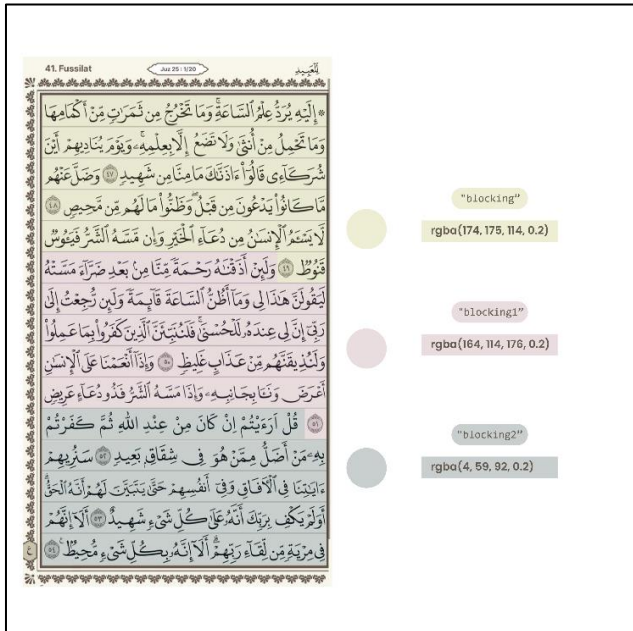 41. Fussilat
Juz 25 : 1/20
لِّلْعَبِيدِ
۞ إِلَيْهِ يُرَدُّ عِلْمُ ٱلسَّاعَةِۚ وَمَا تَخْرُجُ مِن ثَمَرَٰتٍ مِّنْ أَكْمَامِهَا
وَمَا تَحْمِلُ مِنْ أُنثَىٰ وَلَا تَضَعُ إِلَّا بِعِلْمِهِۦۚ وَيَوْمَ يُنَادِيهِمْ أَيْنَ
شُرَكَآءِى قَالُوٓا۟ ءَاذَنَّٰكَ مَا مِنَّا مِن شَهِيدٍ ٤٧ وَضَلَّ عَنْهُم
مَّا كَانُوا۟ يَدْعُونَ مِن قَبْلُۖ وَظَنُّوا۟ مَا لَهُم مِّن مَّحِيصٍ ٤٨
لَّا يَسْـَٔمُ ٱلْإِنسَٰنُ مِن دُعَآءِ ٱلْخَيْرِ وَإِن مَّسَّهُ ٱلشَّرُّ فَيَـُٔوسٌ
قَنُوطٌ ٤٩ وَلَئِنْ أَذَقْنَٰهُ رَحْمَةً مِّنَّا مِنۢ بَعْدِ ضَرَّآءَ مَسَّتْهُ
لَيَقُولَنَّ هَٰذَا لِى وَمَآ أَظُنُّ ٱلسَّاعَةَ قَآئِمَةً وَلَئِن رُّجِعْتُ إِلَىٰ
رَبِّىٓ إِنَّ لِى عِندَهُۥ لَلْحُسْنَىٰۚ فَلَنُنَبِّئَنَّ ٱلَّذِينَ كَفَرُوا۟ بِمَا عَمِلُوا۟
وَلَنُذِيقَنَّهُم مِّنْ عَذَابٍ غَلِيظٍ ٥٠ وَإِذَآ أَنْعَمْنَا عَلَى ٱلْإِنسَٰنِ
أَعْرَضَ وَنَـَٔا بِجَانِبِهِۦ وَإِذَا مَسَّهُ ٱلشَّرُّ فَذُو دُعَآءٍ عَرِيضٍ
٥١ قُلْ أَرَءَيْتُمْ إِن كَانَ مِنْ عِندِ ٱللَّهِ ثُمَّ كَفَرْتُم
بِهِۦ مَنْ أَضَلُّ مِمَّنْ هُوَ فِى شِقَاقٍۭ بَعِيدٍ ٥٢ سَنُرِيهِمْ
ءَايَٰتِنَا فِى ٱلْـَٔافَاقِ وَفِىٓ أَنفُسِهِمْ حَتَّىٰ يَتَبَيَّنَ لَهُمْ أَنَّهُ ٱلْحَقُّۗ
أَوَلَمْ يَكْفِ بِرَبِّكَ أَنَّهُۥ عَلَىٰ كُلِّ شَىْءٍ شَهِيدٌ ٥٣ أَلَآ إِنَّهُمْ
فِى مِرْيَةٍ مِّن لِّقَآءِ رَبِّهِمْۗ أَلَآ إِنَّهُۥ بِكُلِّ شَىْءٍ مُّحِيطٌۢ ٥٤
ع
"blocking"
rgba(174, 175, 114, 0.2)
"blocking1"
rgba(164, 114, 176, 0.2)
"blocking2"
rgba(4, 59, 92, 0.2)